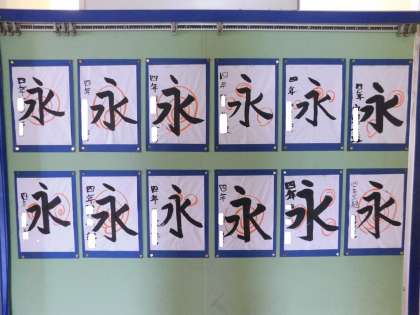 永
四年
永
四年
永
四年
永
四年
永
四年
永
四年
永
四年
永
四年
永
四年
永
四年
永
四年
永